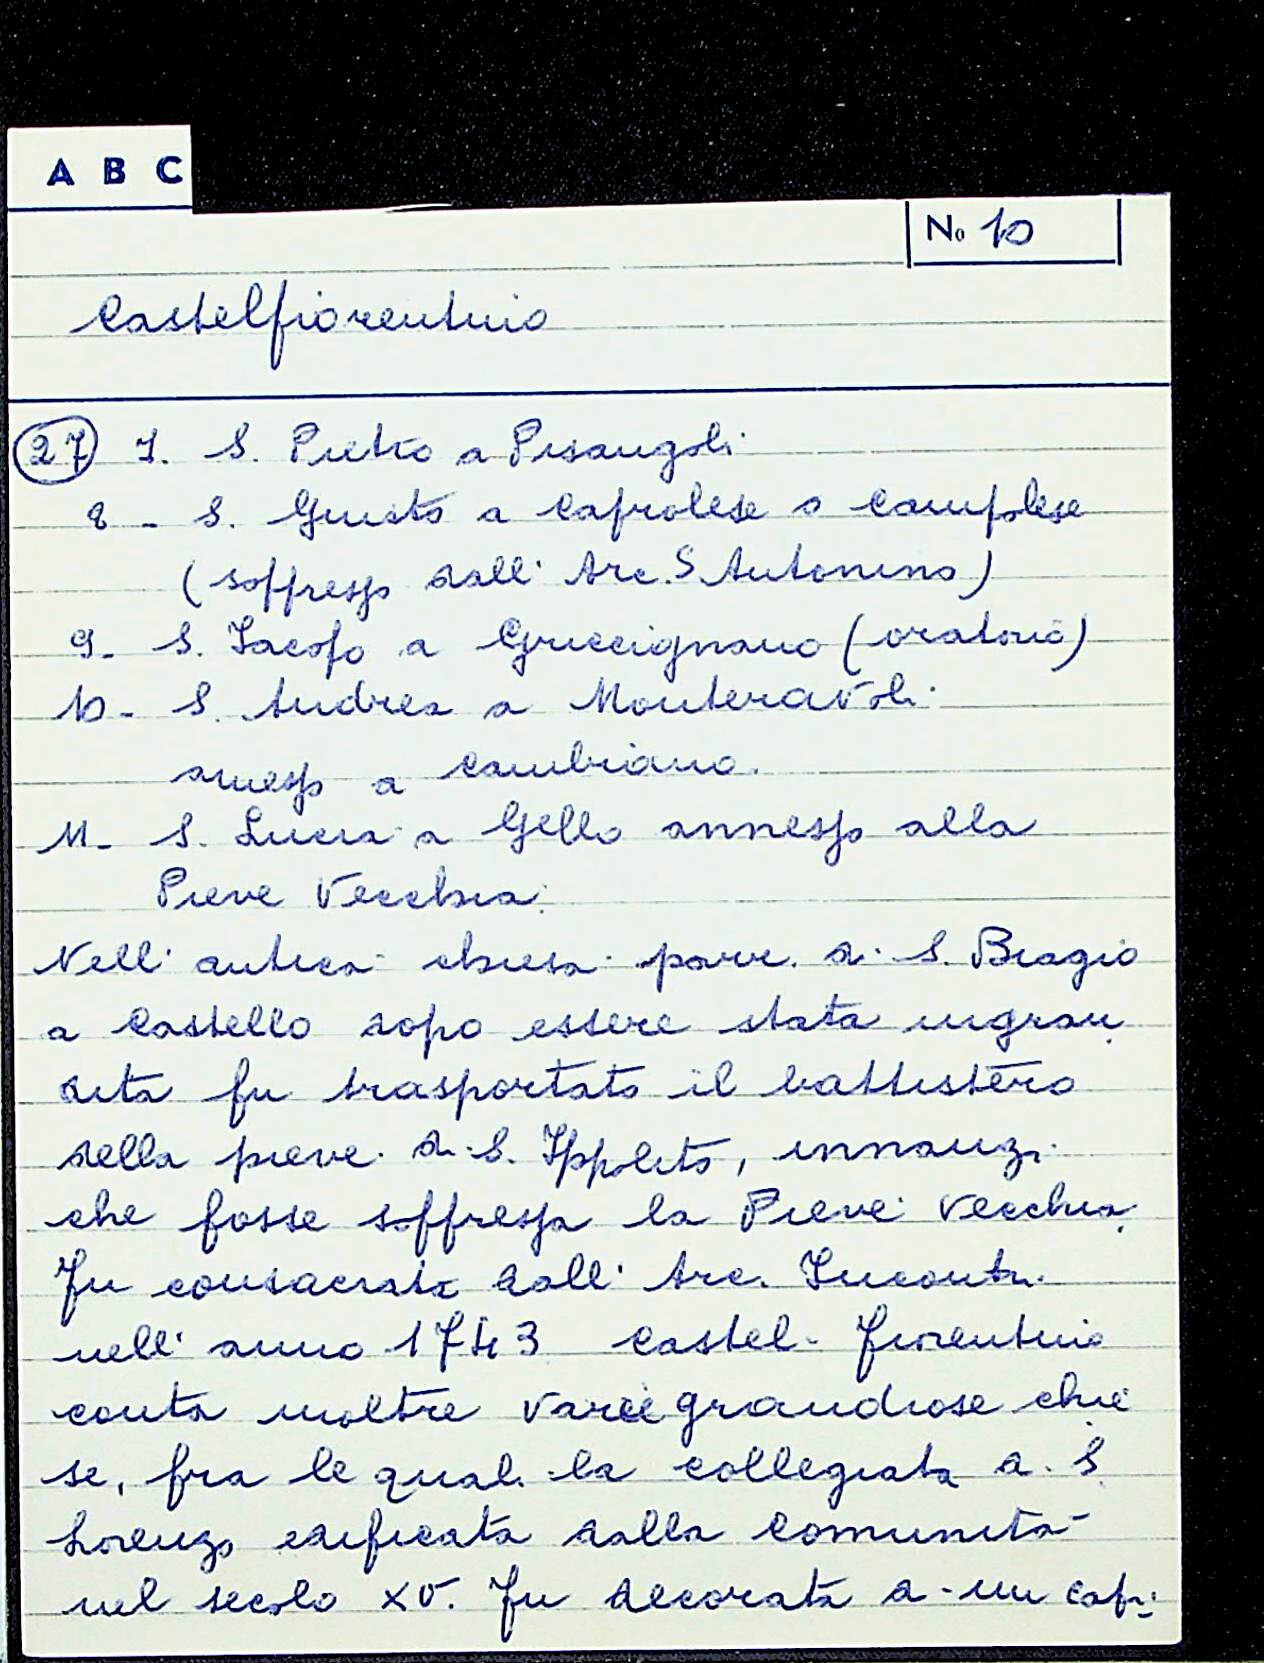 A B C
No 10
Castelfiorentino
27 7. S. Pietro a Pisangoli
8 - S. Giusto a Caprolese o Camplese
(soppresso dall' Arc. S Antonino)
9- S. Jacopo a Gricciignano (oratorio)
10- S. Andrea a Monteravoli
annesso a Cambiano.
11- S. Lucia a Gello annesso alla
Pieve Vecchia.
Nell' antica chiesa parr. di S. Biagio
a Castello dopo essere stata ingran
dita fu trasportato il battistero
della pieve di S. Ippolito, innanzi
che fosse soppressa la Pieve Vecchia.
Fu consacrata dall' Arc. Incontri
nell' anno 1743 Castel-fiorentino
conta inoltre varie grandiose chie
se, fra le quali la collegiata di S.
Lorenzo edificata dalla Comunità
nel secolo XV. Fu decorata di un capi